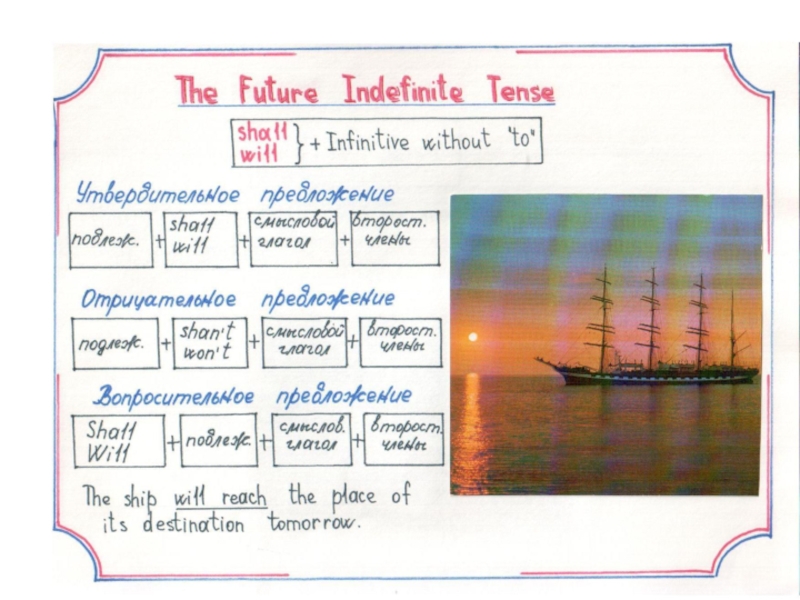 The Future Indefinite Tense
shall
will } + Infinitive without "to"
Утвердительное предложение
подлеж. + shall will + смысловой глагол + второст. члены
Отрицательное предложение
подлеж. + shan't won't + смысловой глагол + второст. члены
Вопросительное предложение
Shall Will + подлеж. + смыслов. глагол + второст. члены
The ship will reach the place of
its destination tomorrow.